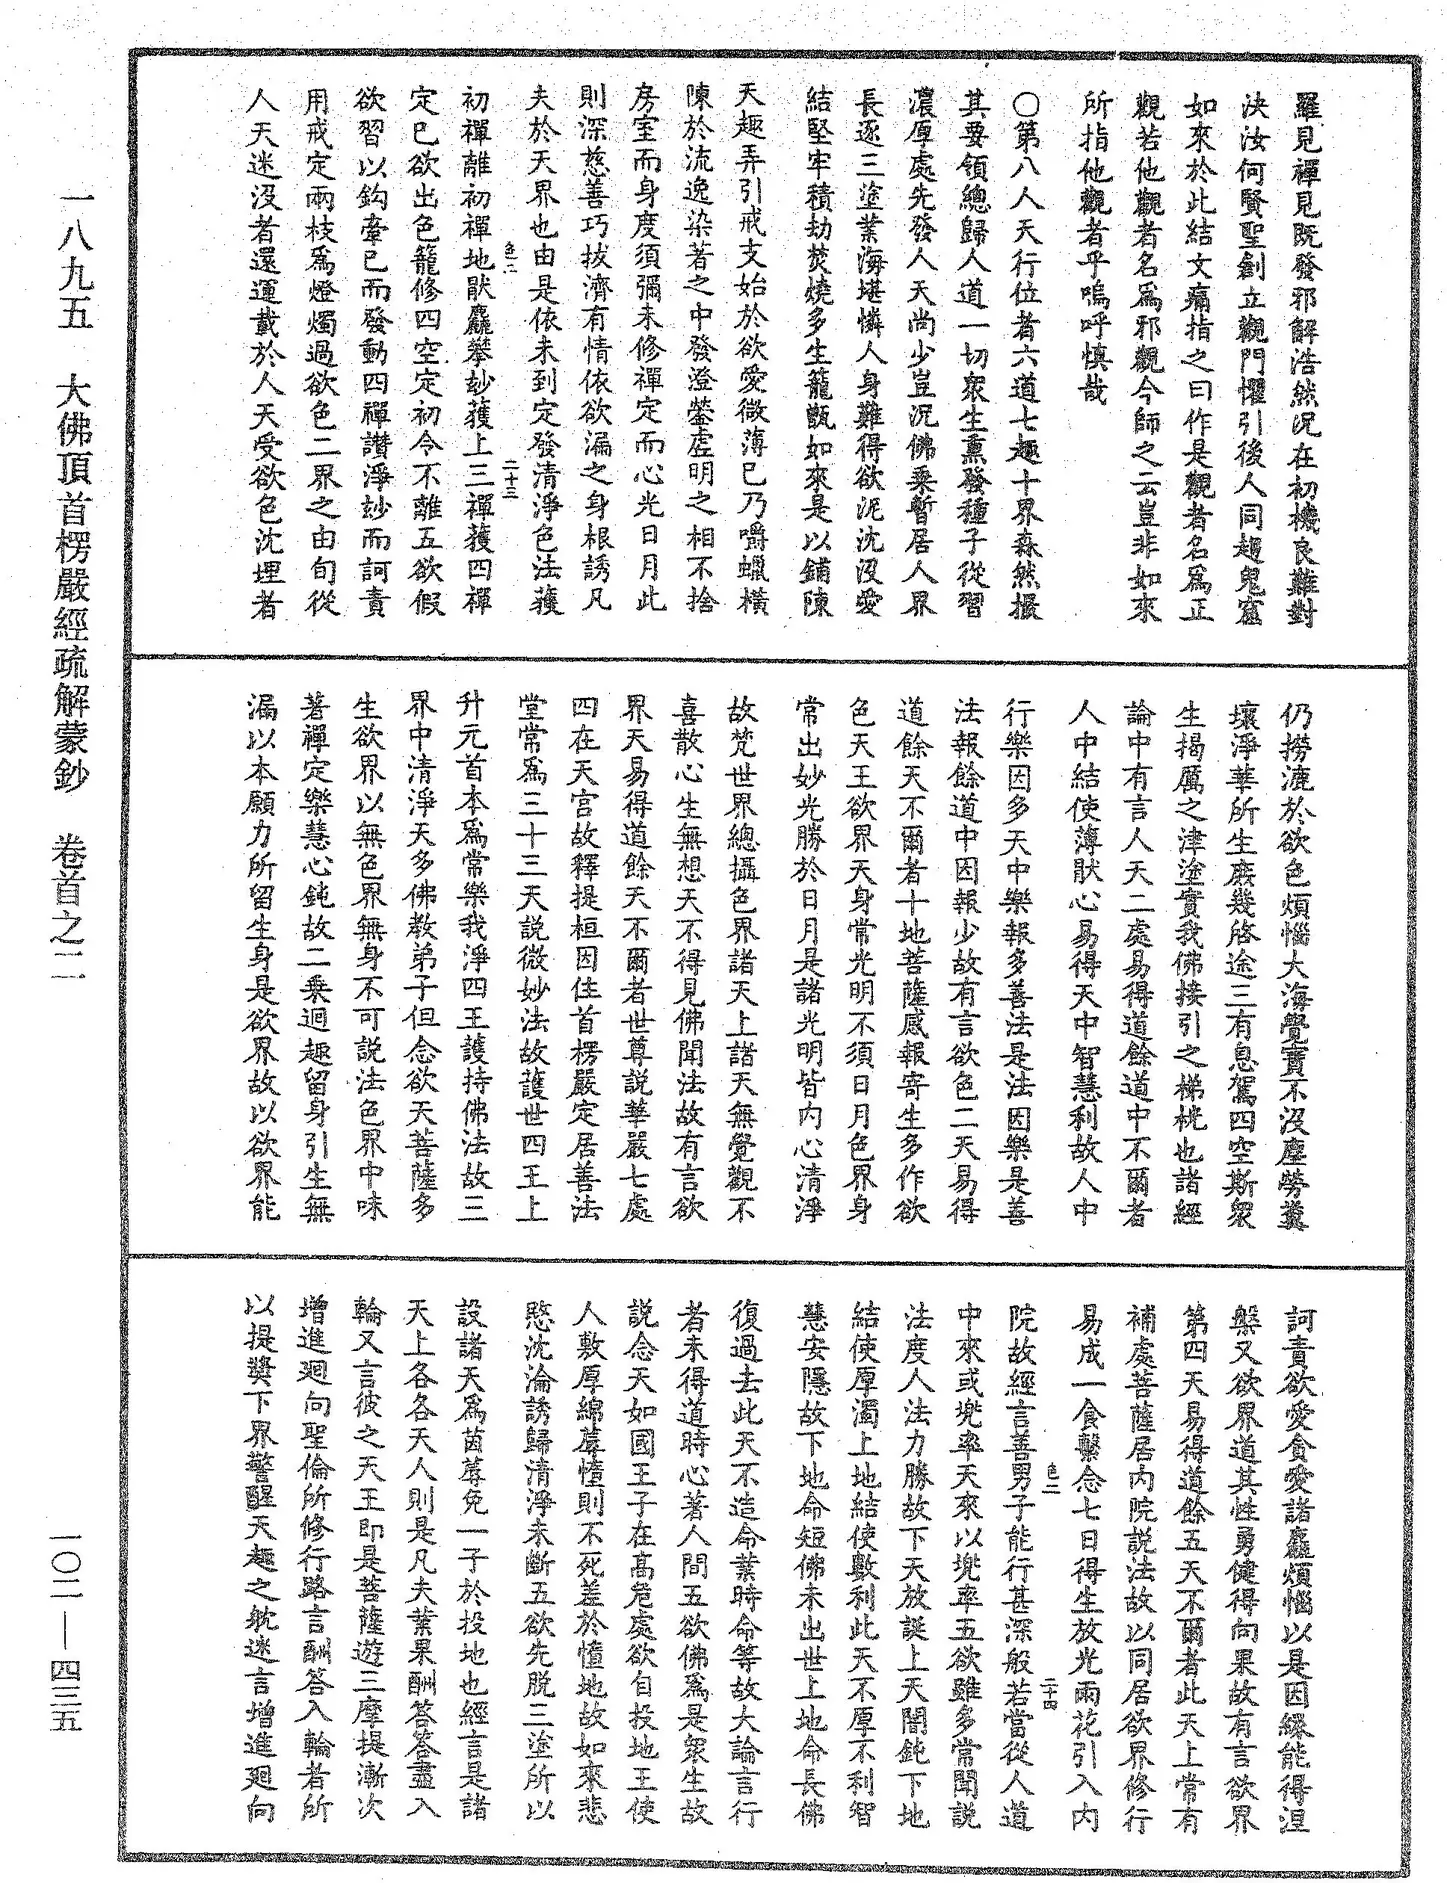 羅見禪見既發邪解浩然況在初機良難對
決汝何賢聖創立觀門懼引後人同趨鬼窟
如來於此結文痛指之曰作是觀者名為正
觀若他觀者名為邪觀今師之云豈非如來
所指他觀者乎嗚呼慎哉
○第八人天行位者六道七趣十界森然撮
其要領總歸人道一切衆生熏發種子從習
濃厚處先發人天尚少豈況佛乘暫居人界
長逐三塗業海堪憐人身難得欲泥沈沒愛
結堅牢積劫焚燒多生籠甑如來是以鋪陳
天趣弄引戒支始於欲愛微薄已乃嚼蠟橫
陳於流逸染著之中發澄瑩虛明之相不捨
房室而身度須彌未修禪定而心光日月此
則深慈善巧拔濟有情依欲漏之身根誘凡
夫於天界也由是依未到定發清淨色法蔉
初禪離初禪地猒麤攀玅蔉上三禪蔉四禪
定已欲出色籠修四空定初令不離五欲假
欲習以鈎牽已而發動四禪讚淨玅而訶責
用戒定兩枝爲燈燭過欲色二界之由旬從
人天迷沒者還運載於人天受欲色沈埋者
色二
二十三
仍撈漉於欲色煩惱大海覺寶不沒塵勞糞
壤淨華所生庶幾啓途三有息駕四空斯衆
生揭厲之津塗實我佛接引之梯桄也諸經
論中有言人天二處易得道餘道中不爾者
人中結使薄猒心易得天中智慧利故人中
行樂因多天中樂報多善法是法因樂是善
法報餘道中因報少故有言欲色二天易得
道餘天不爾者十地菩薩感報寄生多作欲
色天王欲界天身常光明不須日月色界身
常出妙光勝於日月是諸光明皆内心清淨
故梵世界總攝色界諸天上諸天無覺觀不
喜散心生無想天不得見佛聞法故有言欲
界天易得道餘天不爾者世尊説華嚴七處
四在天宫故釋提桓因住首楞嚴定居善法
堂常爲三十三天説微妙法故護世四王上
升元首本爲常樂我淨四王護持佛法故三
界中清淨天多佛教弟子但念欲天菩薩多
生欲界以無色界無身不可説法色界中味
著禪定樂慧心鈍故二乘迴趣留身引生無
漏以本願力所留生身是欲界故以欲界能
訶責欲愛貪愛諸麤煩惱以是因緣能得涅
槃又欲界道其性勇健得向果故有言欲界
第四天易得道餘五天不爾者此天上常有
補處菩薩居内院説法故以同居欲界修行
易成一食繫念七日得生放光雨花引入内
院故經言善男子能行甚深般若當從人道
中來或兜率天來以兜率五欲雖多常聞説
法度人法力勝故下天放誕上天闇鈍下地
結使厚濁上地結使數利此天不厚不利智
慧安隱故下地命短佛未出世上地命長佛
色二
二十四
復過去此天不造命業時命等故大論言行
者未得道時心著人間五欲佛爲是衆生故
説念天如國王子在高危處欲自投地王使
人敷厚綿蓐憶則不死差於憶地故如來悲
愍沈淪誘歸清淨未斷五欲先脱三塗所以
設諸天爲茵蓐免一子於投地也經言是諸
天上各各天人則是凡夫業果酬答答盡入
輪又言彼之天王即是菩薩遊三摩提漸次
增進廻向聖倫所修行路言酬答入輪者所
以提奬下界警醒天趣之躭迷言增進廻向
一八九五　大佛頂首楞嚴經疏解蒙鈔　卷首之二
一〇二—四三五